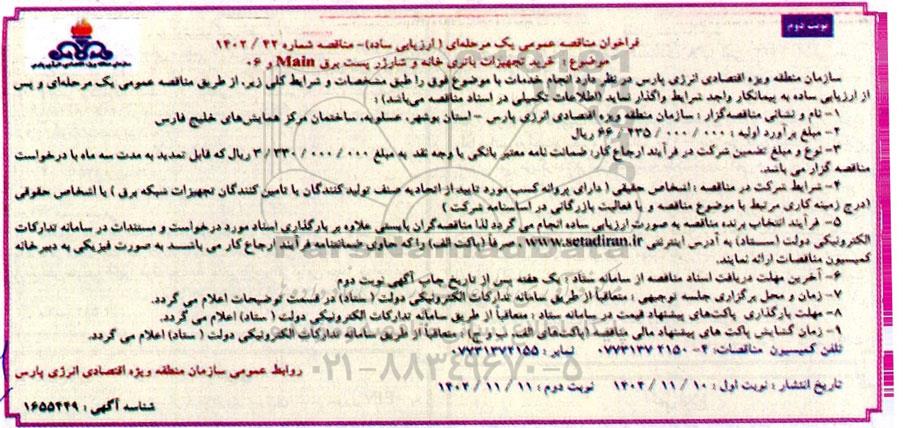 نوبت دوم
سازمان منطقه ویژه اقتصادی انرژی پارس
فراخوان مناقصه عمومی یک مرحله‌ای ( ارزیابی ساده)- مناقصه شماره ۴۲ / ۱۴۰۲
موضوع : خرید تجهیزات باتری خانه و شارژر پست برق Main و ۰۶
سازمان منطقه ویژه اقتصادی انرژی پارس در نظر دارد انجام خدمات با موضوع فوق را طبق مشخصات و شرایط کلی زیر، از طریق مناقصه عمومی یک مرحله‌ای و پس
از ارزیابی ساده به پیمانکار واجد شرایط واگذار نماید (اطلاعات تکمیلی در اسناد مناقصه می‌باشد) :
۱- نام و نشانی مناقصه‌گزار : سازمان منطقه ویژه اقتصادی انرژی پارس - استان بوشهر، عسلویه، ساختمان مرکز همایش‌های خلیج فارس
۲- مبلغ برآورد اولیه : ۰۰۰ / ۰۰۰ / ۶۶/۴۳۵ ریال
۳- نوع و مبلغ تضمین شرکت در فرآیند ارجاع کار: ضمانت نامه معتبر بانکی یا وجه نقد به مبلغ ۰۰۰ / ۰۰۰ / ۳/۳۳۰ ریال که قابل تمدید به مدت سه ماه با درخواست
مناقصه گزار می باشد.
۴- شرایط شرکت در مناقصه : اشخاص حقیقی ( دارای پروانه کسب مورد تایید از اتحادیه صنف تولید کنندگان یا تامین کنندگان تجهیزات شبکه برق ) یا اشخاص حقوقی
(درج زمینه کاری مرتبط با موضوع مناقصه و یا فعالیت بازرگانی در اساسنامه شرکت )
۵- فرآیند انتخاب برنده مناقصه به صورت ارزیابی ساده انجام می گردد لذا مناقصه‌گران بایستی علاوه بر بارگذاری اسناد مورد درخواست و مستندات در سامانه تدارکات
الکترونیکی دولت (ستاد) به آدرس اینترنتی www.setadiran.ir ، صرفاً (پاکت الف) را که حاوی ضمانتنامه فرآیند ارجاع کار می باشد به صورت فیزیکی به دبیرخانه
کمیسیون مناقصات ارائه نمایند.
۶- آخرین مهلت دریافت اسناد مناقصه از سامانه ستاد: یک هفته پس از تاریخ چاپ آگهی نوبت دوم
۷- زمان و محل برگزاری جلسه توجیهی : متعاقباً از طریق سامانه تدارکات الکترونیکی دولت ( ستاد) در قسمت توضیحات اعلام می گردد.
۸- مهلت بارگذاری پاکت‌های پیشنهاد قیمت در سامانه ستاد : متعاقباً از طریق سامانه تدارکات الکترونیکی دولت ( ستاد) اعلام می گردد.
۹- زمان گشایش پاکت های پیشنهاد مالی مناقصه (پاکت‌های الف، ب و ج): متعاقباً از طریق سامانه تدارکات الکترونیکی دولت ( ستاد) اعلام می گردد.
تلفن کمیسیون مناقصات: ۴- ۰۷۷۳۱۳۷۲۱۵۰ نمابر : ۰۷۷۳۱۳۷۲۱۵۵
روابط عمومی سازمان منطقه ویژه اقتصادی انرژی پارس
تاریخ انتشار : نوبت اول : ۱۰ / ۱۱ / ۱۴۰۲ نوبت دوم : ۱۱ / ۱۱ / ۱۴۰۲
شناسه آگهی : ۱۶۵۵۴۴۹
ParsNamadData
۰۲۱-۸۸۳۴۹۶۷۰-۵